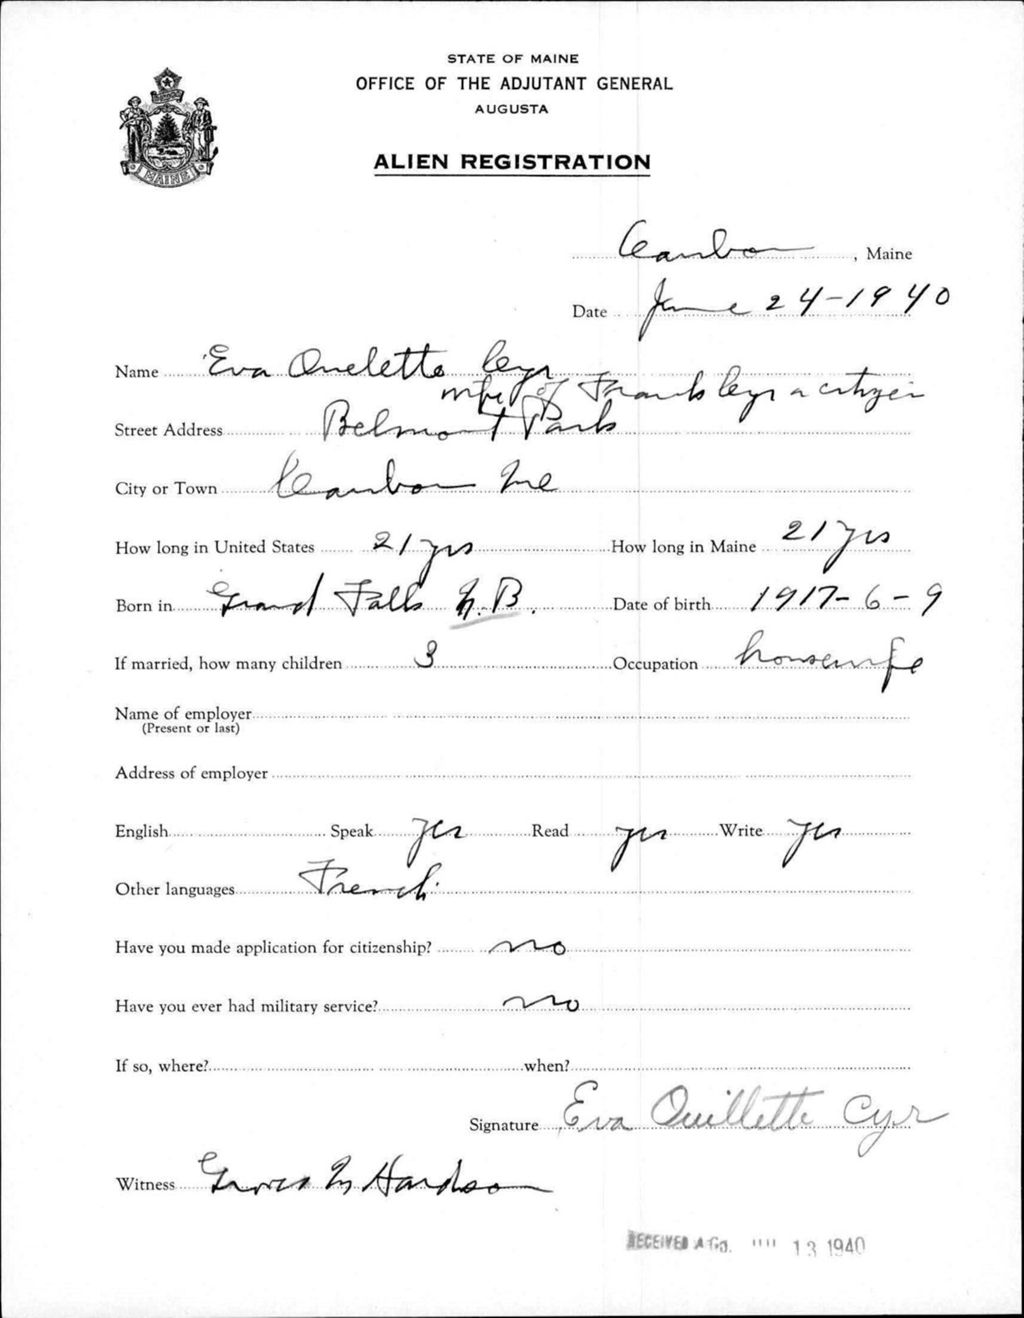 STATE OF MAINE
OFFICE OF THE ADJUTANT GENERAL
AUGUSTA
MAINE
ALIEN REGISTRATION
Caribou, Maine
Date June 24-1940
Name Eva Ouelette Cyr
wife of Frank Cyr a citizen
Street Address Belmont Park
City or Town Caribou Me
How long in United States 21 yrs How long in Maine 21 yrs
Born in Grand Falls N.B. Date of birth 1917-6-9
If married, how many children 3 Occupation housewife
Name of employer
(Present or last)
Address of employer
English Speak yes Read yes Write yes
Other languages French
Have you made application for citizenship? no
Have you ever had military service? no
If so, where? when?
Signature Eva Ouillette Cyr
Witness M Hardson
RECEIVED A.G.O. 13 1940